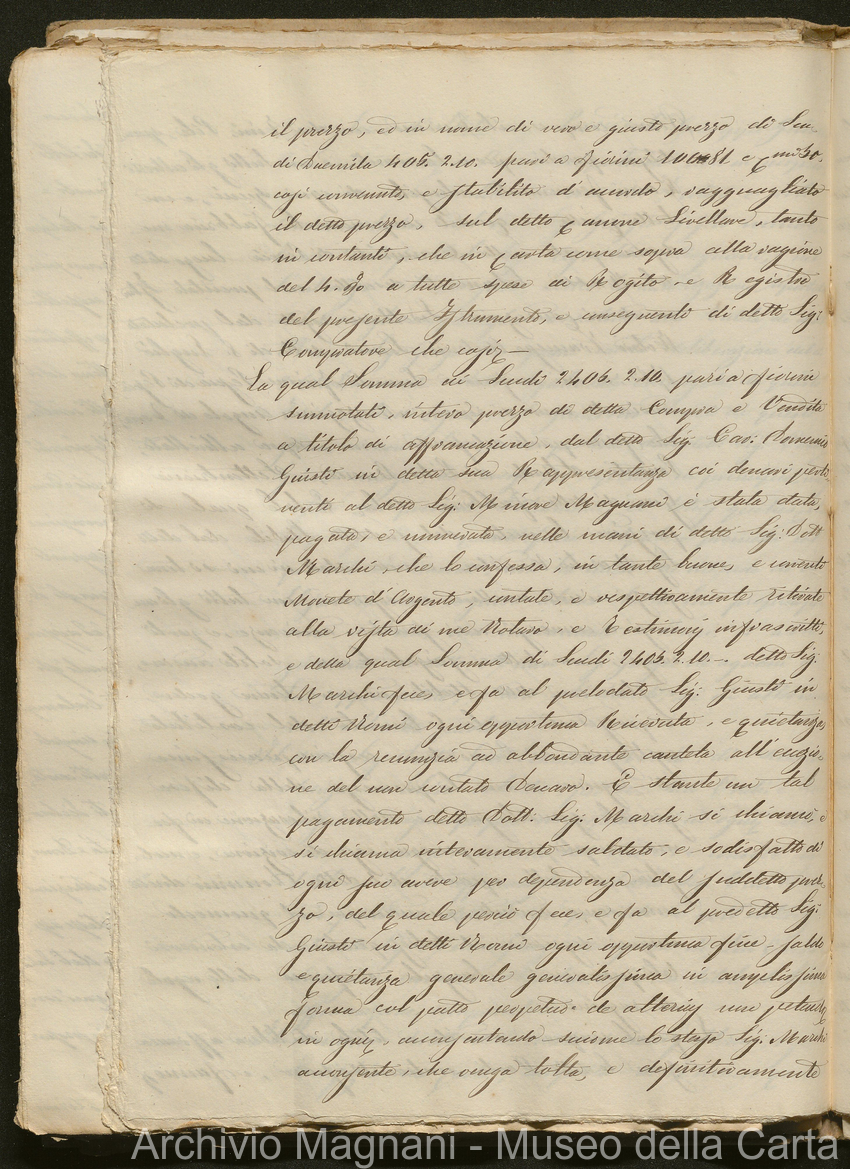 il prezzo, ed in nome di vero e giusto prezzo di Scu-
di Duemila 406. 2.10. pari a fiorini e cmi 30.
così convenuto, e stabilito d'accordo, ragguagliato
il detto prezzo, sul detto Canone Livellare, tanto
in contanti, che in Carta come sopra alla ragione
del 4. p%o a tutte spese di Rogito, e Registro
del presente Istrumento, e conseguenti di detto Sig:
Compratore che così —
La qual Somma di Scudi 2406. 2.10. pari a fiorini
sunnotati, intero prezzo di detta Compra e Vendita
a titolo di affrancazione, dal detto Sig. Cav: Domenico
Giusti in detta sua Rappresentanza coi denari perti
nenti al detto Sig: Minore Magnani è stata data,
pagata, e numerata, nelle mani di detto Sig: Dott
Marchi, che lo confessa, in tante buone, e correnti
Monete d'Argento, contate, e respettivamente ritirate
alla vista di me Notaro, e Testimonj infrascritti,
e della qual Somma di Scudi 2406. 2.10. —. detto Sig.
Marchi fece, e fa al prelodato Sig: Giusti in
detti Nomi ogni opportuna Ricevuta, e quietanza,
con la renunzia ad abbondante cautela all'eccezio-
ne del non contato Denaro. E stante un tal
pagamento detto Dott: Sig: Marchi si chiamò, e
si chiama interamente saldato, e sodisfatto di
ogni suo avere per dependenza del suddetto prez-
zo, del quale perciò fece, e fa al predetto Sig:
Giusti in detti Nomi ogni opportuna fine, saldo
e quietanza generale generalissima in amplissima
forma col patto perpetuo de alterius non petendo
in ogni, acconsentendo siccome lo stesso Sig: Marchi
acconsente, che venga tolta, e definitivamente
Archivio Magnani - Museo della Carta